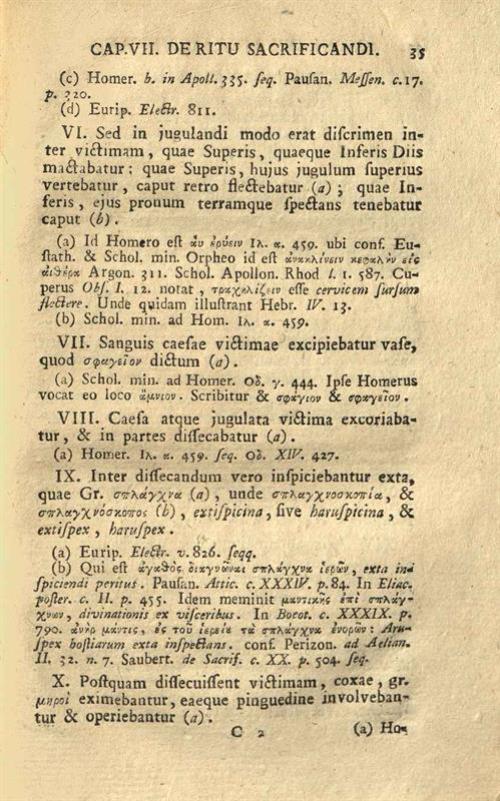 CAP.VII. DE RITU SACRIFICANDI. 35
(c) Homer. h. in Apoll. 335. ſeq. Pauſan. Meſſen. c. 17.
p. 320.
(d) Eurip. Electr. 811.
VI. Sed in jugulandi modo erat diſcrimen in-
ter victimam, quae Superis, quaeque Inferis Diis
mactabatur: quae Superis, hujus jugulum ſuperius
vertebatur, caput retro flectebatur (a); quae In-
feris, ejus pronum terramque ſpectans tenebatur
caput (b).
(a) Id Homero eſt αὐ ἐρύειν Ιλ. α. 459. ubi conf. Eu-
ſtath. & Schol. min. Orpheo id eſt ἀνακλίνειν κεφαλὴν εἰς
αἰθέρα Argon. 311. Schol. Apollon. Rhod l. 1. 587. Cu-
perus Obſ. I. 12. notat, τραχηλίζειν eſſe cervicem ſurſum
flectere. Unde quidam illuſtrant Hebr. IV. 13.
(b) Schol. min. ad Hom. Ιλ. α. 459.
VII. Sanguis caeſae victimae excipiebatur vaſe,
quod σφαγεῖον dictum (a).
(a) Schol. min. ad Homer. Οδ. γ. 444. Ipſe Homerus
vocat eo loco ἄμνιον. Scribitur & σφάγιον & σφαγεῖον.
VIII. Caeſa atque jugulata victima excoriaba-
tur, & in partes diſſecabatur (a).
(a) Homer. Ιλ. α. 459. ſeq. Οδ. XIV. 427.
IX. Inter diſſecandum vero inſpiciebantur exta,
quae Gr. σπλάγχνα (a), unde σπλαγχνοσκοπία, &
σπλαγχνόσκοπος (b), extiſpicina, ſive haruſpicina, &
extiſpex, haruſpex.
(a) Eurip. Electr. v. 826. ſeqq.
(b) Qui eſt ἀγαθὸς διαγνῶναι σπλάγχνα ἱερῶν, exta in-
ſpiciendi peritus. Pauſan. Attic. c. XXXIV. p. 84. In Eliac.
poſter. c. II. p. 455. Idem meminit μαντικῆς ἐπὶ σπλάγ-
χνων, divinationis ex viſceribus. In Boeot. c. XXXIX. p.
790. ἀνὴρ μάντις, ἐς τοῦ ἱερεία τὰ σπλάγχνα ἐνορῶν: Aru-
ſpex hoſtiarum exta inſpectans. conf. Perizon. ad Aelian.
II. 32. n. 7. Saubert. de Sacrif. c. XX. p. 504. ſeq.
X. Poſtquam diſſecuiſſent victimam, coxae, gr.
μηροὶ eximebantur, eaeque pinguedine involveban-
tur & operiebantur (a).
C 2 (a) Ho-